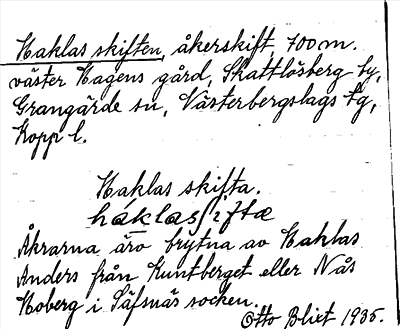 Haklas skiften, åkerskift, 700 m.
väster Hagens gård, Skattlösberg by,
Grangärde sn, Västerbergslags tg,
Kopp l.
Haklas skifta.
håklasʃiftæ
Åkrarna äro brytna av Haklas
Anders från Kuntberget eller Nås
Moberg i Säfsnäs socken.
Otto Blixt 1935.